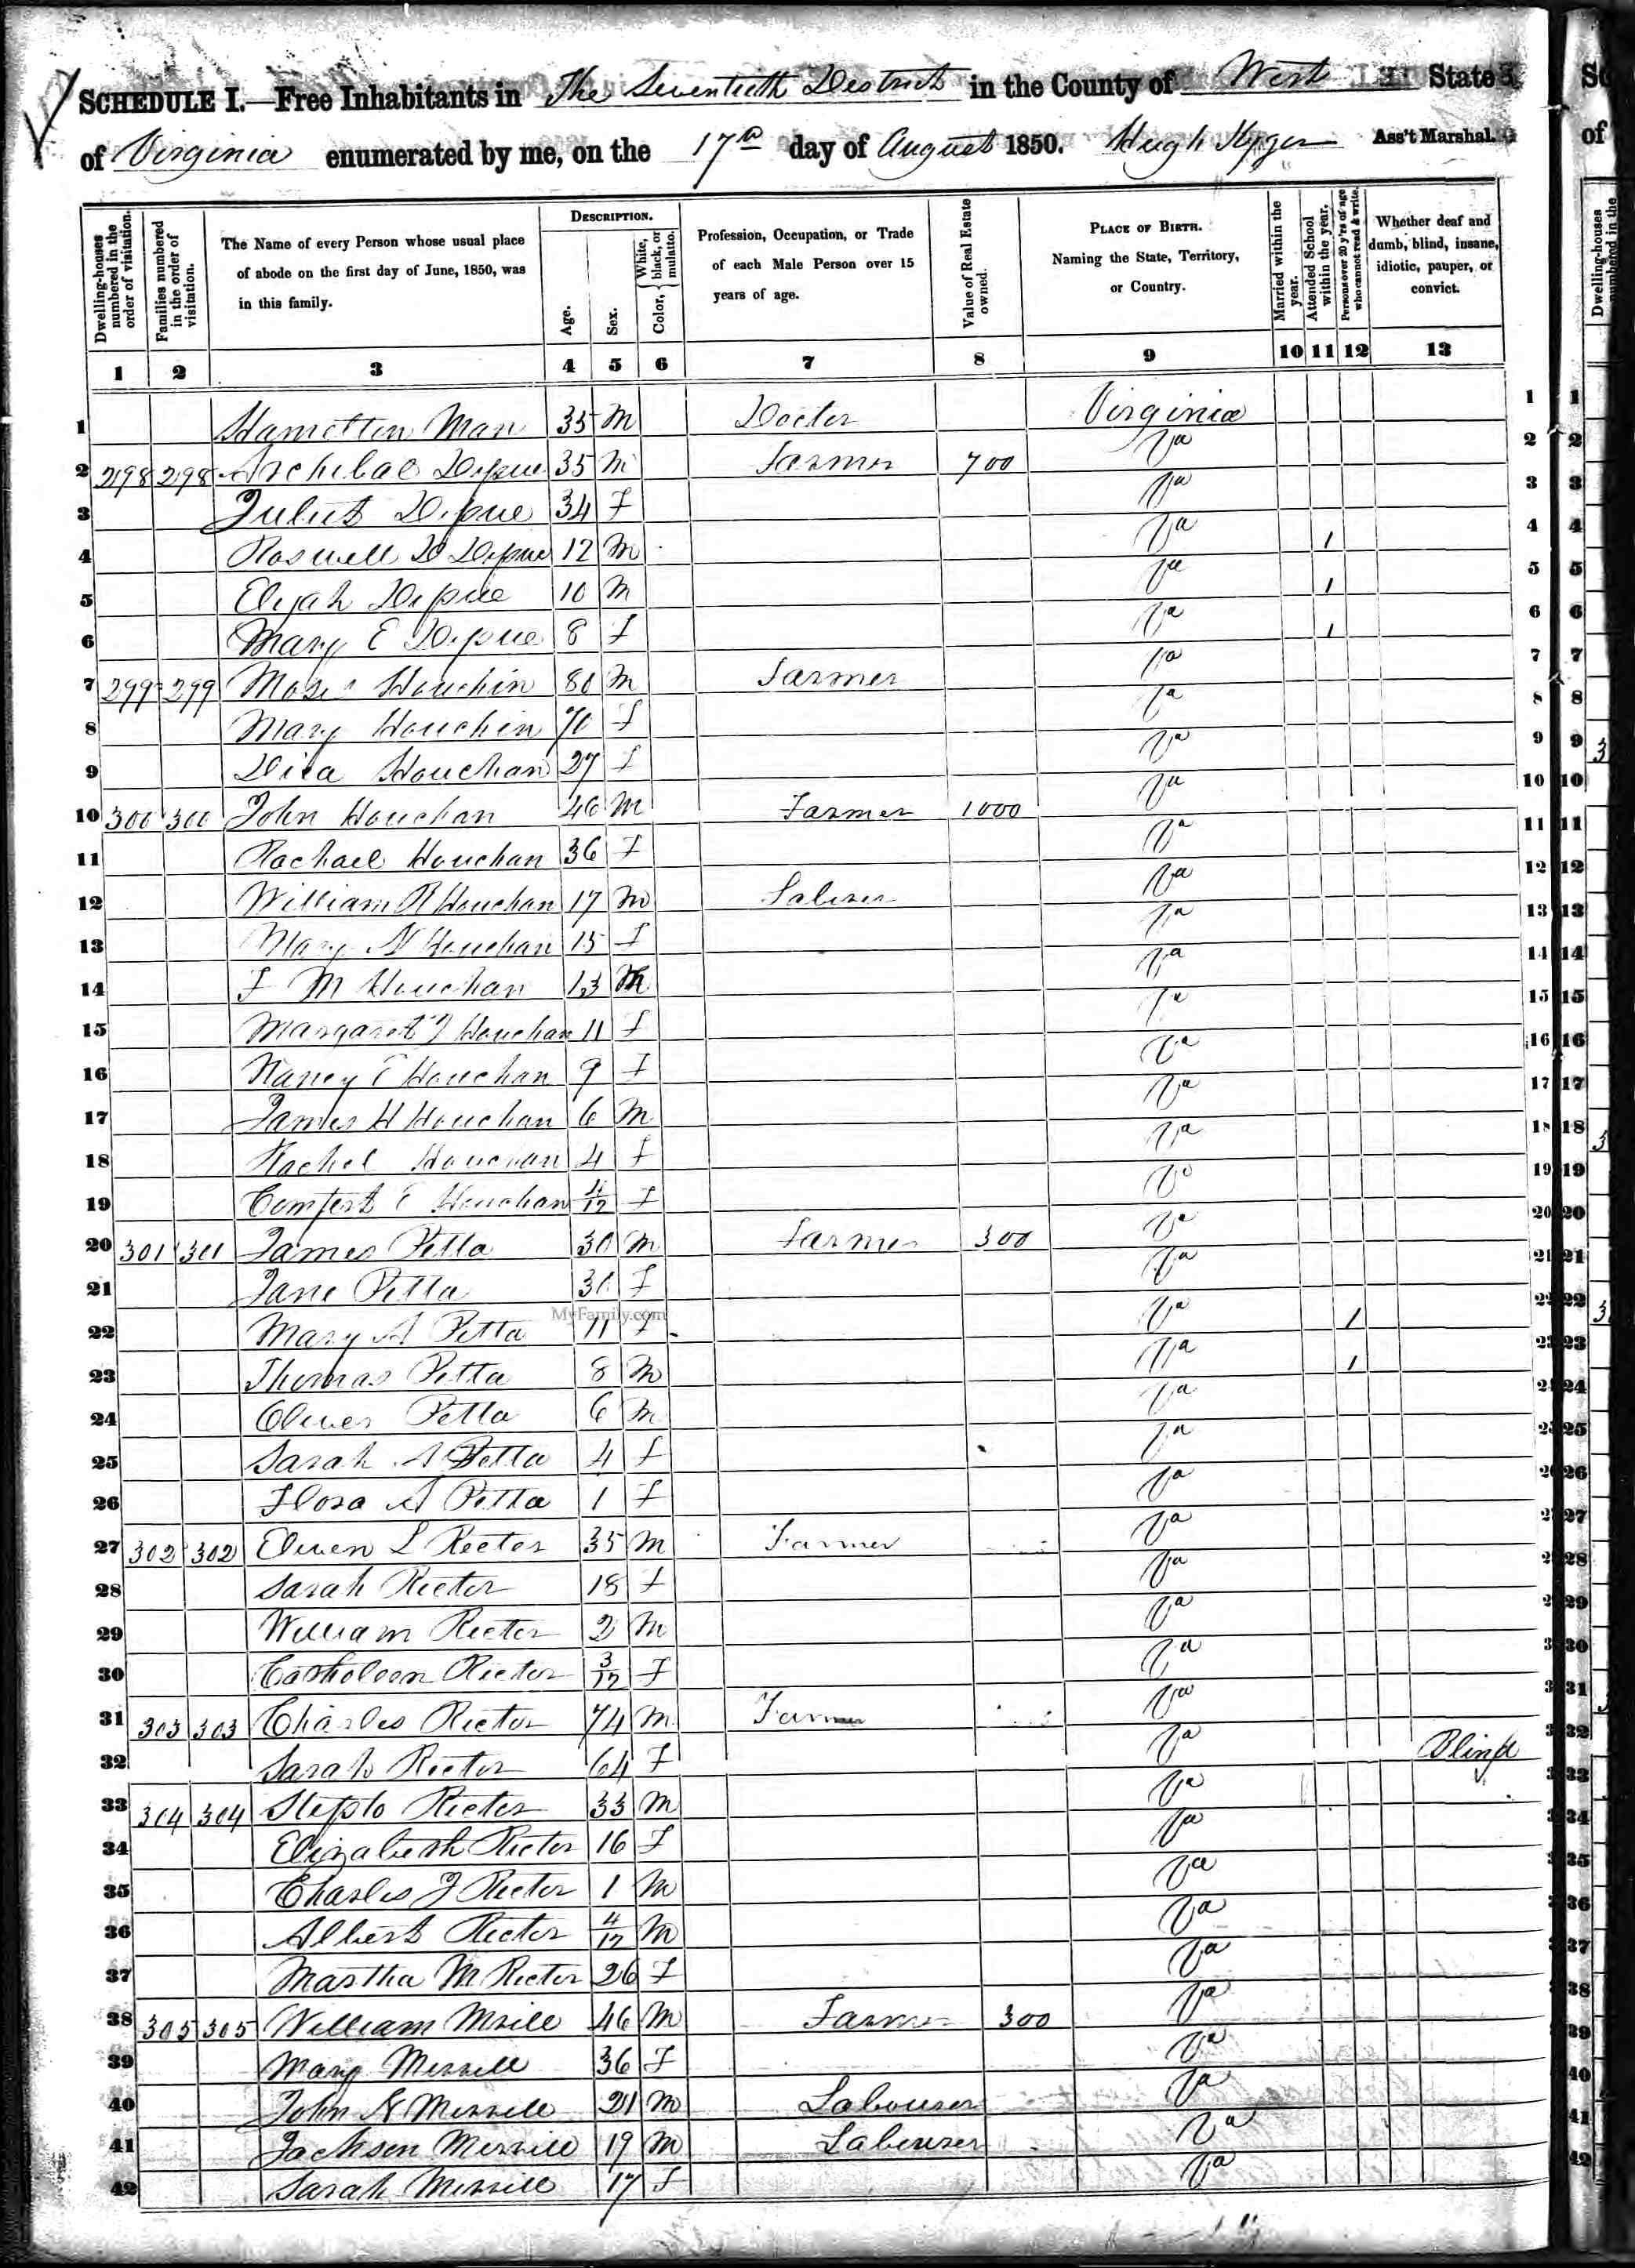 SCHEDULE I.—Free Inhabitants in The Seventieth District in the County of Wirt State
of Virginia enumerated by me, on the 17th day of August 1850. Hugh Kyger Ass't Marshal.
Dwelling-houses numbered in the order of visitation.
Families numbered in the order of visitation.
The Name of every Person whose usual place of abode on the first day of June, 1850, was in this family.
DESCRIPTION.
Age.
Sex.
Color, { White, black, or mulatto.
Profession, Occupation, or Trade of each Male Person over 15 years of age.
Value of Real Estate owned.
PLACE OF BIRTH. Naming the State, Territory, or Country.
Married within the year.
Attended School within the year.
Persons over 20 y'rs of age who cannot read & write.
Whether deaf and dumb, blind, insane, idiotic, pauper, or convict.
1 2 3 4 5 6 7 8 9 10 11 12 13
1 Hamelton Man 35 M Docter Virginia 1
2 298 298 Archibal Depue 35 M Farmer 700 Va 2
3 Juliet Depue 34 F Va 3
4 Roswell D Depue 12 M Va 1 4
5 Elijah Depue 10 M Va 1 5
6 Mary E Depue 8 F Va 1 6
7 299 299 Moses Houchin 80 M Farmer Va 7
8 Mary Houchin 70 F Va 8
9 Houchan 27 F Va 9
10 300 300 John Houchan 46 M Farmer 1000 Va 10
11 Rachael Houchan 36 F Va 11
12 William R Houchan 17 M Va 12
13 Mary Houchan 15 F Va 13
14 F M Houchan 13 M Va 14
15 Margaret J Houchan 11 F Va 15
16 Nancy E Houchan 9 F Va 16
17 James H Houchan 6 M Va 17
18 Rachel Houchan 4 F Va 18
19 Comfort E Houchan 4/12 F Va 19
20 301 301 James Petta 30 M Farmer 300 Va 20
21 Jane Petta 30 F Va 21
22 Mary A Petta 11 F Va 1 22
23 Thomas Petta 8 M Va 1 23
24 Oliver Petta 6 M Va 24
25 Sarah A Petta 4 F Va 25
26 Flora A Petta 1 F Va 26
27 302 302 Elwen L Rector 35 M Farmer Va 27
28 Sarah Rector 18 F Va 28
29 William Rector 2 M Va 29
30 Rector 3/12 F Va 30
31 303 303 Charles Rector 74 M Farmer Va 31
32 Sarah Rector 64 F Va Blind 32
33 304 304 Stepto Rector 33 M Va 33
34 Elizabeth Rector 16 F Va 34
35 Charles J Rector 1 M Va 35
36 Albert Rector 4/12 M Va 36
37 Martha M Rector 26 F Va 37
38 305 305 William Mrill 46 M Farmer 300 Va 38
39 Mary Merrill 36 F Va 39
40 John N Merrill 21 M Labourer Va 40
41 Jackson Merrill 19 M Labourer Va 41
42 Sarah Merrill 17 F Va 42
MyFamily.com